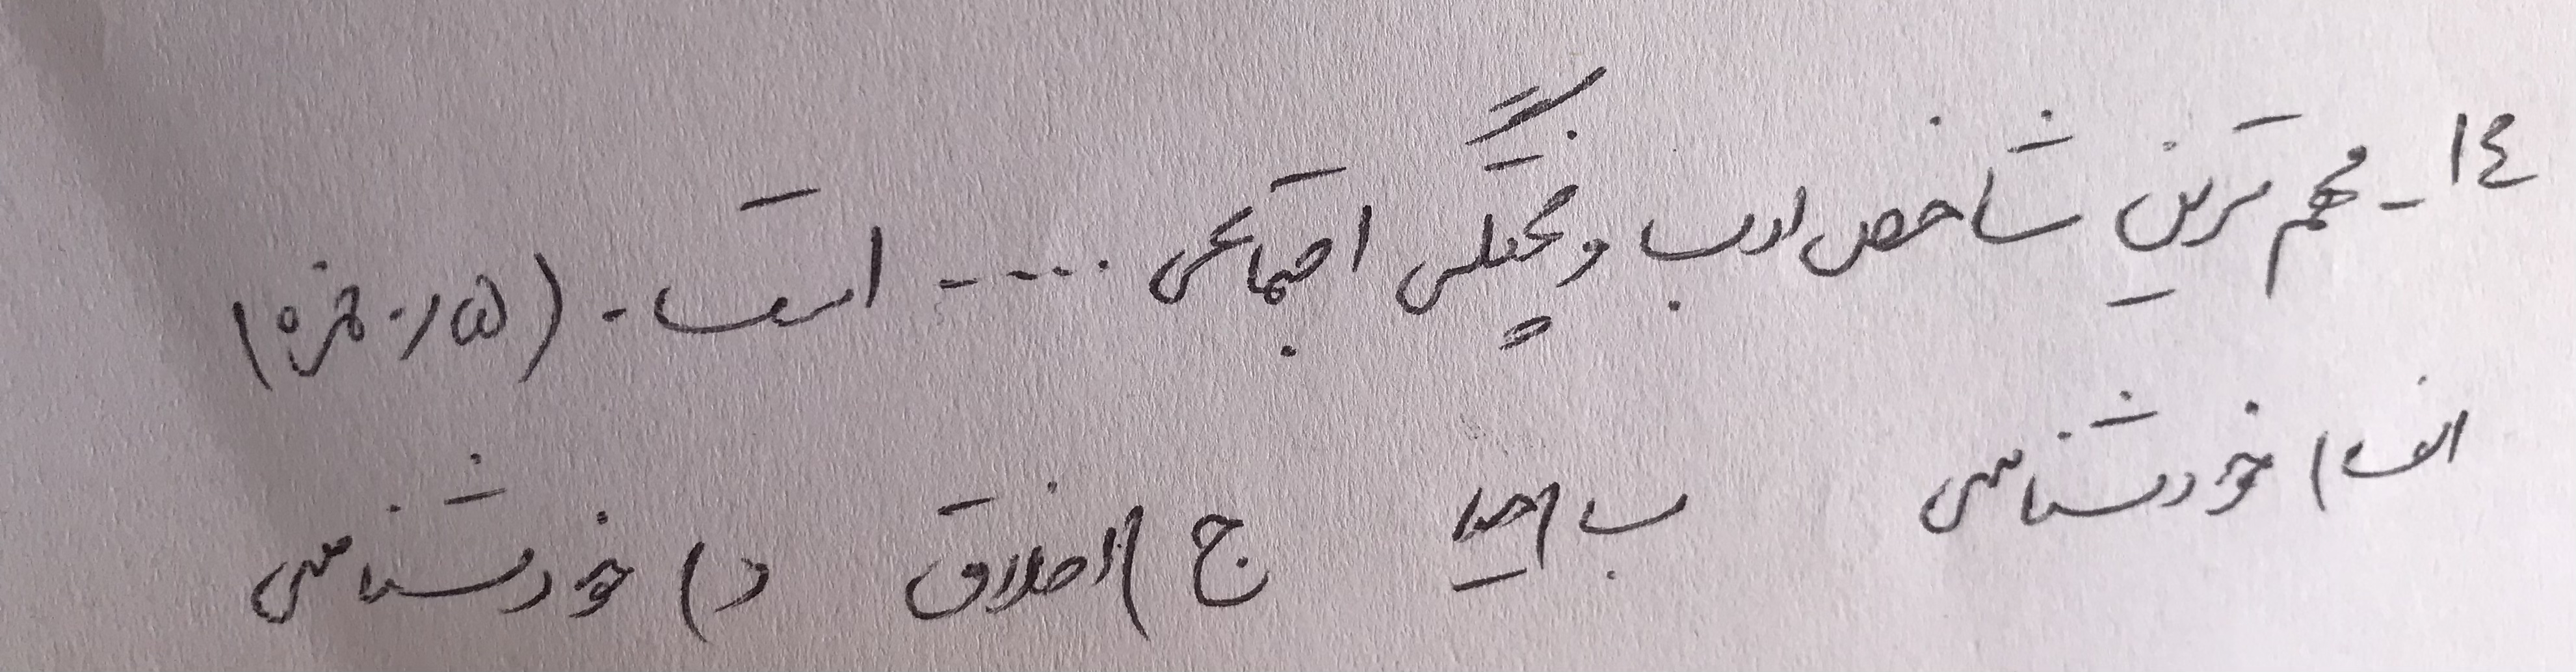 ١٤- مهم ترین شاخص ادب و پختگی اجتماعی ..... است. (۰/۵ نمره)
الف) خودشناسی ب) حیا ج) اخلاق د) خودشناسی